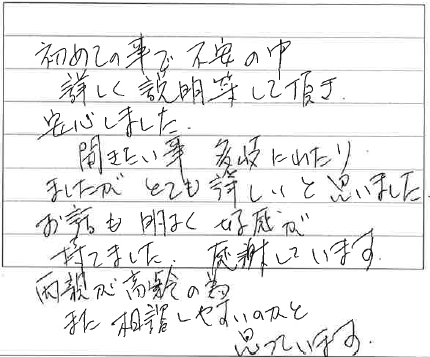 初めての事で不安の中
詳しく説明等して頂き
安心しました。
聞きたい事 多岐にわたり
ましたが とても詳しいと思いました。
お話も明るく好感が
持てました。感謝しています。
両親が高齢の為
また相談しやすいのかと
思っています。